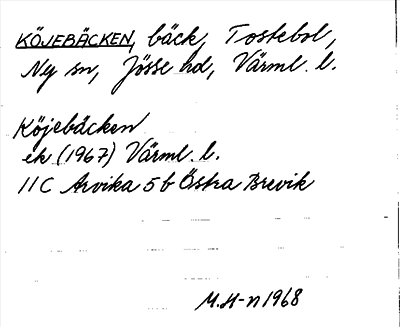 KÖJEBÄCKEN, bäck, Tostebol,
Ny sn, Jösse hd, Värml. l.
Köjebäcken
ek (1967) Värml. l.
11C Arvika 5b Östra Brevik
M.H-n 1968